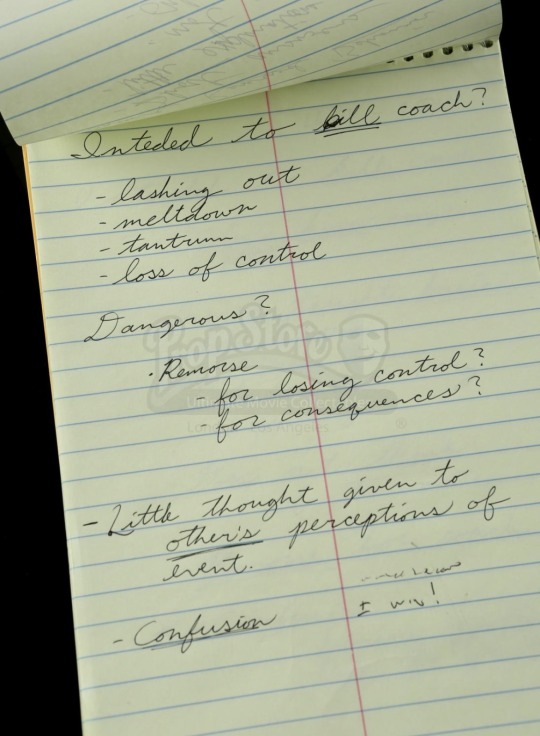 Inteded to kill coach?
- lashing out
- meltdown
- tantrum
- loss of control
Dangerous?
· Remorse
- for losing control?
- for consequences?
- Little thought given to
other's perceptions of
event.
I win!
- Confusion
PropStore
Ultimate Movie Collectables
London - Los Angeles